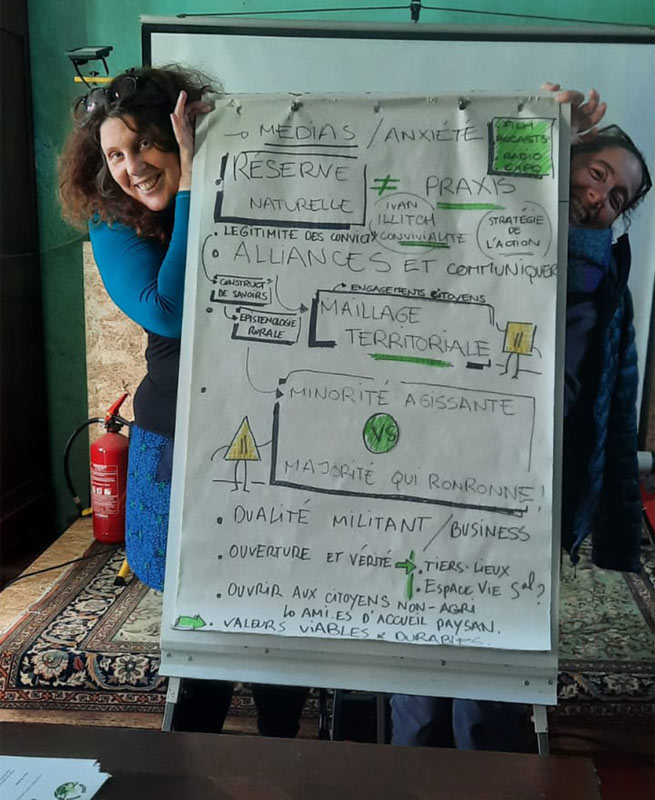 → MÉDIAS / ANXIÉTÉ
FILM
POCASTS
RADIO
EXPO
• RÉSERVE
NATURELLE
≠ PRAXIS
IVAN
ILLITCH
CONVIVIALITÉ
STRATÉGIE
DE
L'ACTION
• LÉGITIMITÉ DES CONVIC°S
• ALLIANCES ET COMMUNIQUER
CONSTRUCT°
DE SAVOIRS
↳ ÉPISTEMOLOGIE
RURALE
ENGAGEMENTS CITOYENS
MAILLAGE
TERRITORIALE
• MINORITÉ AGISSANTE
VS
MAJORITÉ QUI RONRONNE!
• DUALITÉ MILITANT / BUSINESS
• OUVERTURE ET VÉRITÉ → • TIERS-LIEUX
• ESPACE VIE
• OUVRIR AUX CITOYENS NON-AGRI
↳ AMI.ES D'ACCUEIL PAYSAN.
→ • VALEURS VIABLES & DURABLES